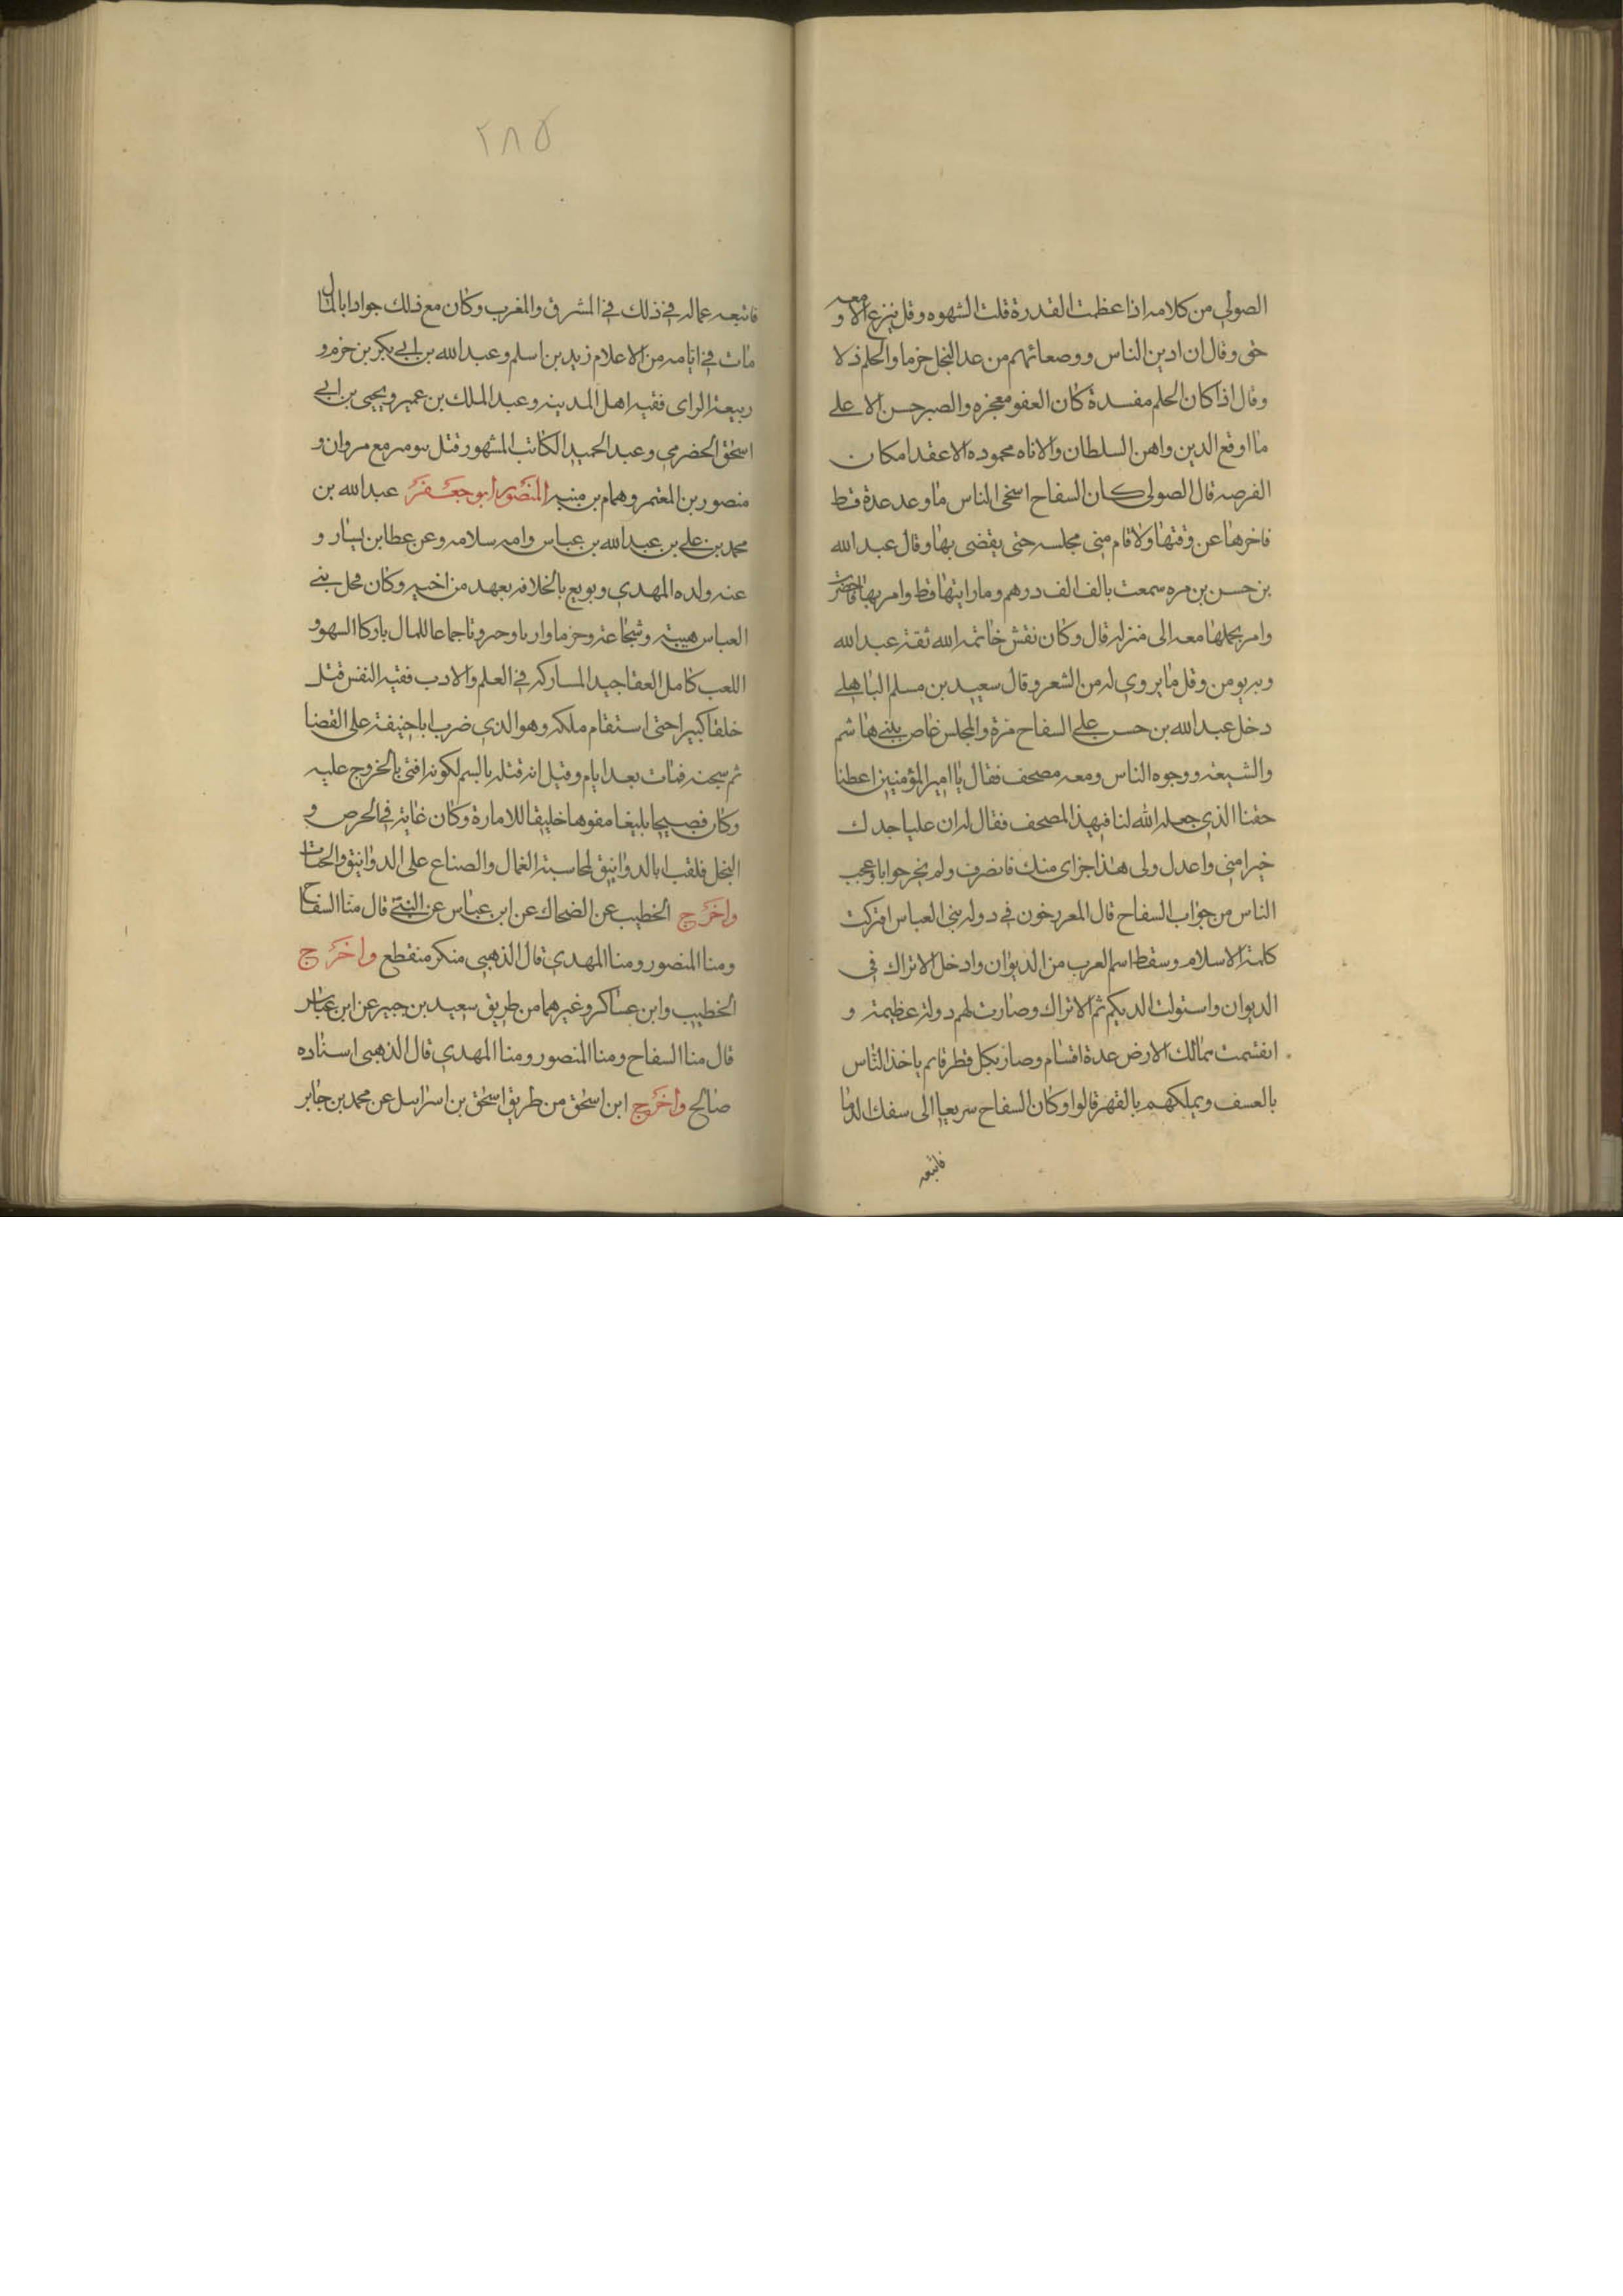 الصولي من كلامه اذا عظمت القدرة قلت الشهوه وقل نبرع الا ومعه
حق وقال ان ادين الناس ووصعائهم من عد البخل حزما والحلم ذلا
وقال اذا كان الحلم مفسدة كان العفو معجزه والصبر حسن الا على
ما اوقع الدين واهن السلطان والاناه محموده الا عقد امكان
الفرصه قال الصولى كان السفاح اسخى الناس ما وعد عدة قط
فاخرها عن وقتها ولا قام منى مجلسه حتى يقضى بها وقال عبد الله
بن حسن بن مره سمعت بالف الف درهم وما رايتها قط وامر بها فاحضرت
وامر بحملها معه الى منزله قال وكان نقش خاتمه الله ثقة عبد الله
وبه يومن وقل ما يروي له من الشعر وقال سعيد بن مسلم الباهلي
دخل عبد الله بن حسن على السفاح مرة والمجلس غاص ببنى هاشم
والشيعة ووجوه الناس ومعه مصحف فقال يا امير المؤمنين اعطنا
حقنا الذي جعله الله لنا في هذا المصحف فقال له ان عليا جدك
خيرا منى واعدل ولى هذا جزاى منك فانصرف ولم يحر جوابا وعجب
الناس من جواب السفاح قال المعرخون في دوله بنى العباس افتركت
كلمة الاسلام وسقط اسم العرب من الديوان وادخل الاتراك في
الديوان واستولت الديكم ثم الاتراك وصارت لهم دولة عظيمة و
انقسمت ممالك الارض عدة اقسام وصار بكل قطر قايم ياخذ الناس
بالعسف ويملكهم بالقهر قالوا وكان السفاح سريعا الى سفك الدما
فاتبعه
٢٨٥
فاتبعه عماله في ذلك في المشرق والمغرب وكان مع ذلك جوادا بالمال
مات في ايامه من الاعلام زيد بن اسلم وعبد الله بن ابي بكر بن حزم و
ربيعة الراى فقيه اهل المدينه وعبد الملك بن عمير ويحيى بن ابي
اسحق الحضرمي وعبد الحميد الكاتب المشهور قتل ببوصر مع مروان و
منصور بن المعتمر وهمام بن منبه المنصور ابو جعفر عبد الله بن
محمد بن علي بن عبد الله بن عباس وامه سلامه وعن عطا بن يسار و
عنه ولده المهدي وبويع بالخلافه بعهد من اخيه وكان فحل بني
العباس هيبة وشجاعة وحزما واريا وجبروتا جماعا للمال باركا السهو و
اللعب كامل العقا جيد المساركه في العلم والادب فقيه النفس قتل
خلقا كبيرا حتى استقام ملكه وهو الذي ضرب ابا حنيفة على القضا
ثم سجنه فمات بعد ايام وقيل انه قتله بالسم لكونه افتى بالخروج عليه
وكان فصيحا بليغا مفوها خليقا للامارة وكان غاية في الحرص و
البخل فلقب ابا الدوانيق لمحاسبة العمال والصناع على الدوانيق والحبات
واخرج الخطيب عن الضحاك عن ابن عباس عن النبي قال منا السفاح
ومنا المنصور ومنا المهدي قال الذهبى منكر منقطع واخرج
الخطيب وابن عساكر وغيرهما من طريق سعيد بن جبير عن ابن عباس
قال منا السفاح ومنا المنصور ومنا المهدي قال الذهبى اسناده
صالح واخرج ابن اسحق من طريق اسحق بن اسرايىل عن محمد بن جابر